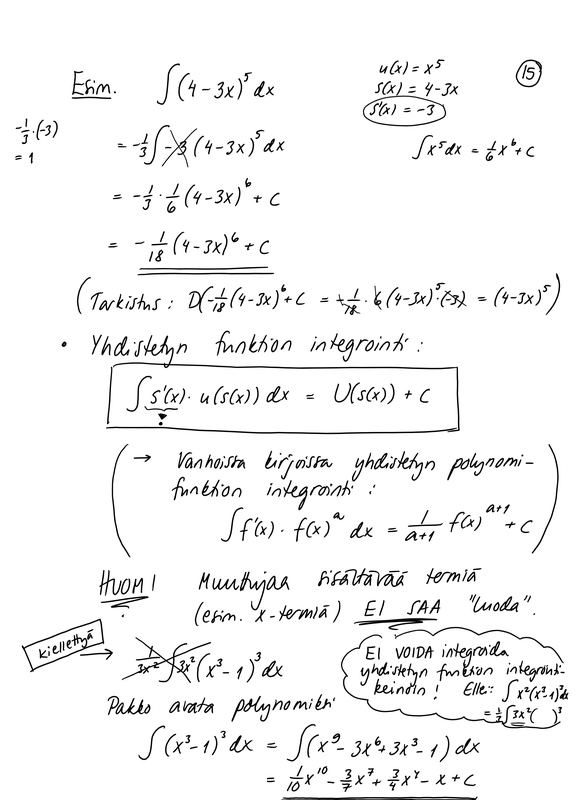 15
Esim. ∫(4-3x)^5 dx
u(x) = x^5
s(x) = 4-3x
s'(x) = -3
-1/3·(-3)
= 1
= -1/3 ∫ -3 (4-3x)^5 dx
∫x^5 dx = 1/6 x^6 + C
= -1/3 · 1/6 (4-3x)^6 + C
= - 1/18 (4-3x)^6 + C
(Tarkistus : D(-1/18 (4-3x)^6 + C = -1/18 · 6 (4-3x)^5·(-3) = (4-3x)^5)
• Yhdistetyn funktion integrointi :
∫ s'(x) · u(s(x)) dx = U(s(x)) + C
(→ Vanhoissa kirjoissa yhdistetyn polynomi-
funktion integrointi :
∫f'(x) · f(x)^a dx = 1/(a+1) f(x)^(a+1) + C)
HUOM! Muuttujaa sisältävää termiä
(esim. x-termiä) EI SAA "luoda".
kiellettyä → 1/(3x^2) ∫3x^2 (x^3-1)^3 dx
EI VOIDA integroida
yhdistetyn funktion integrointi-
keinoin! Ellei: ∫x^2(x^3-1)^3 dx
= 1/3 ∫3x^2( )^3
Pakko avata polynomiksi
∫(x^3-1)^3 dx = ∫(x^9 - 3x^6 + 3x^3 - 1) dx
= 1/10 x^10 - 3/7 x^7 + 3/4 x^4 - x + C